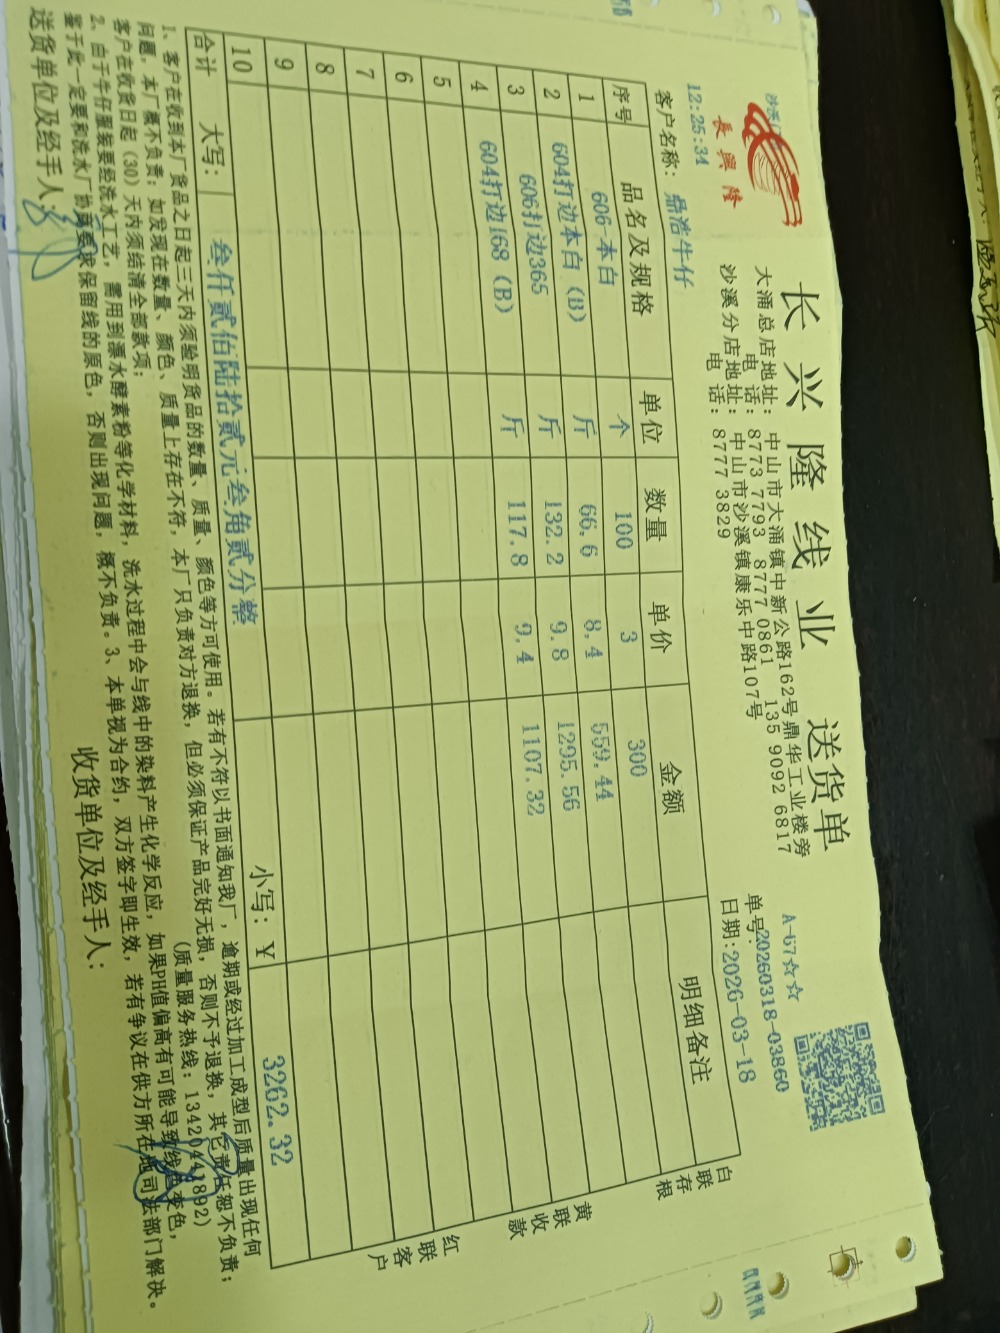 長興隆
长兴隆线业 送货单
大涌总店地址: 中山市大涌镇中新公路162号鼎华工业楼旁
电 话: 8773 7793 8777 0861 135 9092 6817
沙溪分店地址: 中山市沙溪镇康乐中路107号
电 话: 8777 3829
A-67☆☆
单号: 20260318-03860
日期: 2026-03-18
12:25:34
客户名称: 鼎浩牛仔
序号 品名及规格 单位 数量 单价 金额 明细备注
1 606-本白 个 100 3 300
2 604打边本白 (B) 斤 66.6 8.4 559.44
3 606打边365 斤 132.2 9.8 1295.56
4 604打边168 (B) 斤 117.8 9.4 1107.32
5
6
7
8
9
10
合计 大写: 叁仟贰佰陆拾贰元叁角贰分整 小写: ¥ 3262.32
白联存根
黄联收款
红联客户
1、客户在收到本厂货品之日起三天内须验明货品的数量、质量、颜色等方可使用。若有不符以书面通知我厂,逾期或经过加工成型后质量出现任何
问题,本厂概不负责;如发现在数量、颜色、质量上存在不符,本厂只负责对方退换,但必须保证产品完好无损,否则不予退换,其它责任恕不负责;
客户在收货日起(30)天内须给清全部款项; (质量服务热线: 13420441892)
2、由于牛仔服装要经洗水工艺,需用到漂水酵素粉等化学材料,洗水过程中会与线中的染料产生化学反应,如果PH值偏高有可能导致线色变色,
鉴于此一定要和洗水厂协商要求保留线的原色,否则出现问题,概不负责。3、本单视为合约,双方签字即生效,若有争议在供方所在地司法部门解决。
送货单位及经手人: 收货单位及经手人: